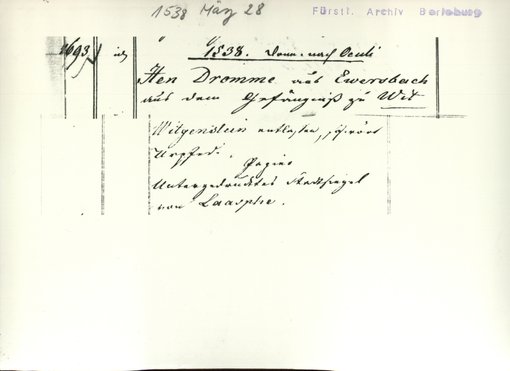 1538 März 28
Fürstl. Archiv Berleburg
1693 1538. Donn. nach Oculi
Hen Dromme aus Ewersbach
aus dem Gefängniß zu Wit
Witgenstein entlassen, schwört
Urpfede.
Papier
Untergedrucktes Stadtsiegel
von Laasphe.